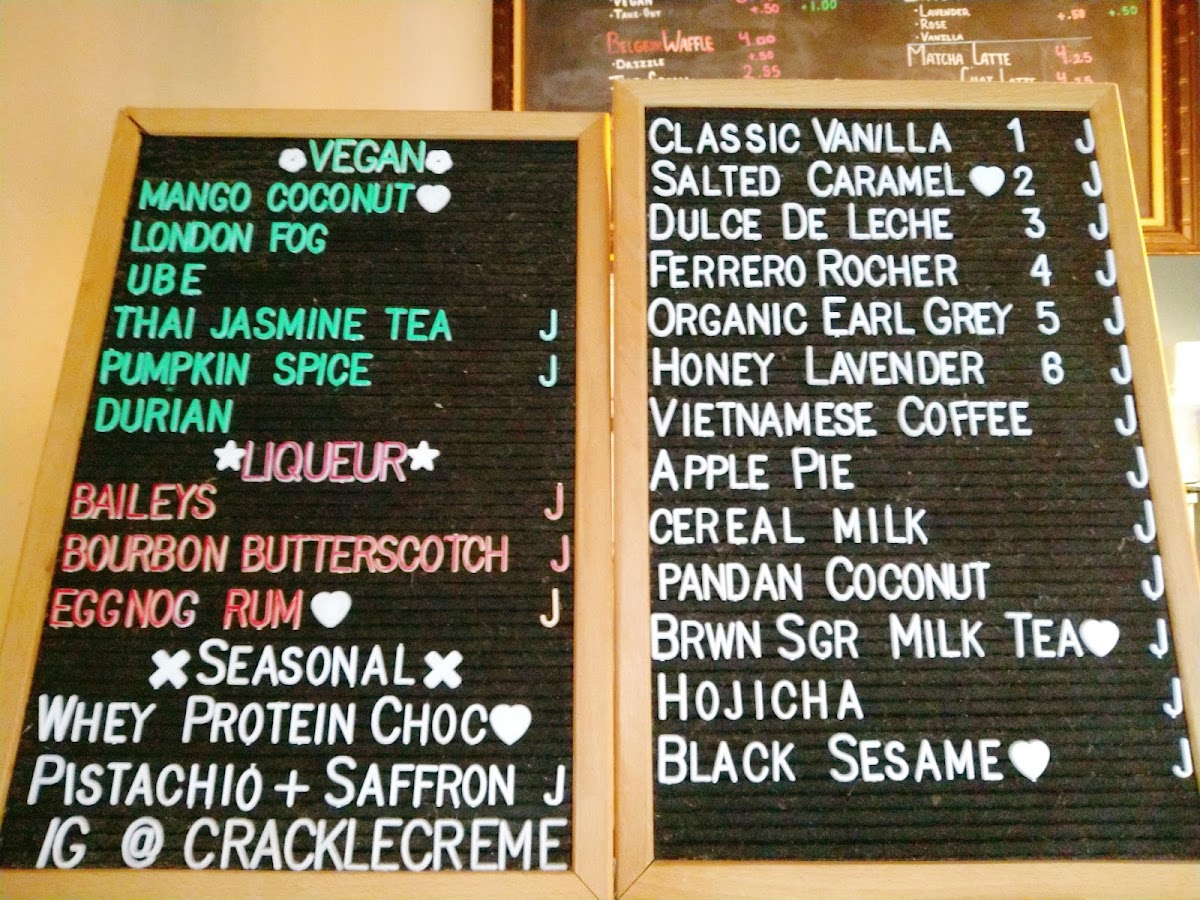 VEGAN
+.50
+1.00
• TAKE-OUT
BELGIAN WAFFLE 4.00
• DRIZZLE +.50
2.95
• LAVENDER +.50 +.50
• ROSE
• VANILLA
MATCHA LATTE 4.25
CHAI LATTE 4.25
VEGAN
MANGO COCONUT
LONDON FOG
UBE
THAI JASMINE TEA J
PUMPKIN SPICE J
DURIAN
LIQUEUR
BAILEYS J
BOURBON BUTTERSCOTCH J
EGGNOG RUM J
SEASONAL
WHEY PROTEIN CHOC
PISTACHIO + SAFFRON J
IG @ CRACKLECREME
CLASSIC VANILLA 1 J
SALTED CARAMEL 2 J
DULCE DE LECHE 3 J
FERRERO ROCHER 4 J
ORGANIC EARL GREY 5 J
HONEY LAVENDER 6 J
VIETNAMESE COFFEE J
APPLE PIE J
CEREAL MILK J
PANDAN COCONUT J
BRWN SGR MILK TEA J
HOJICHA J
BLACK SESAME J